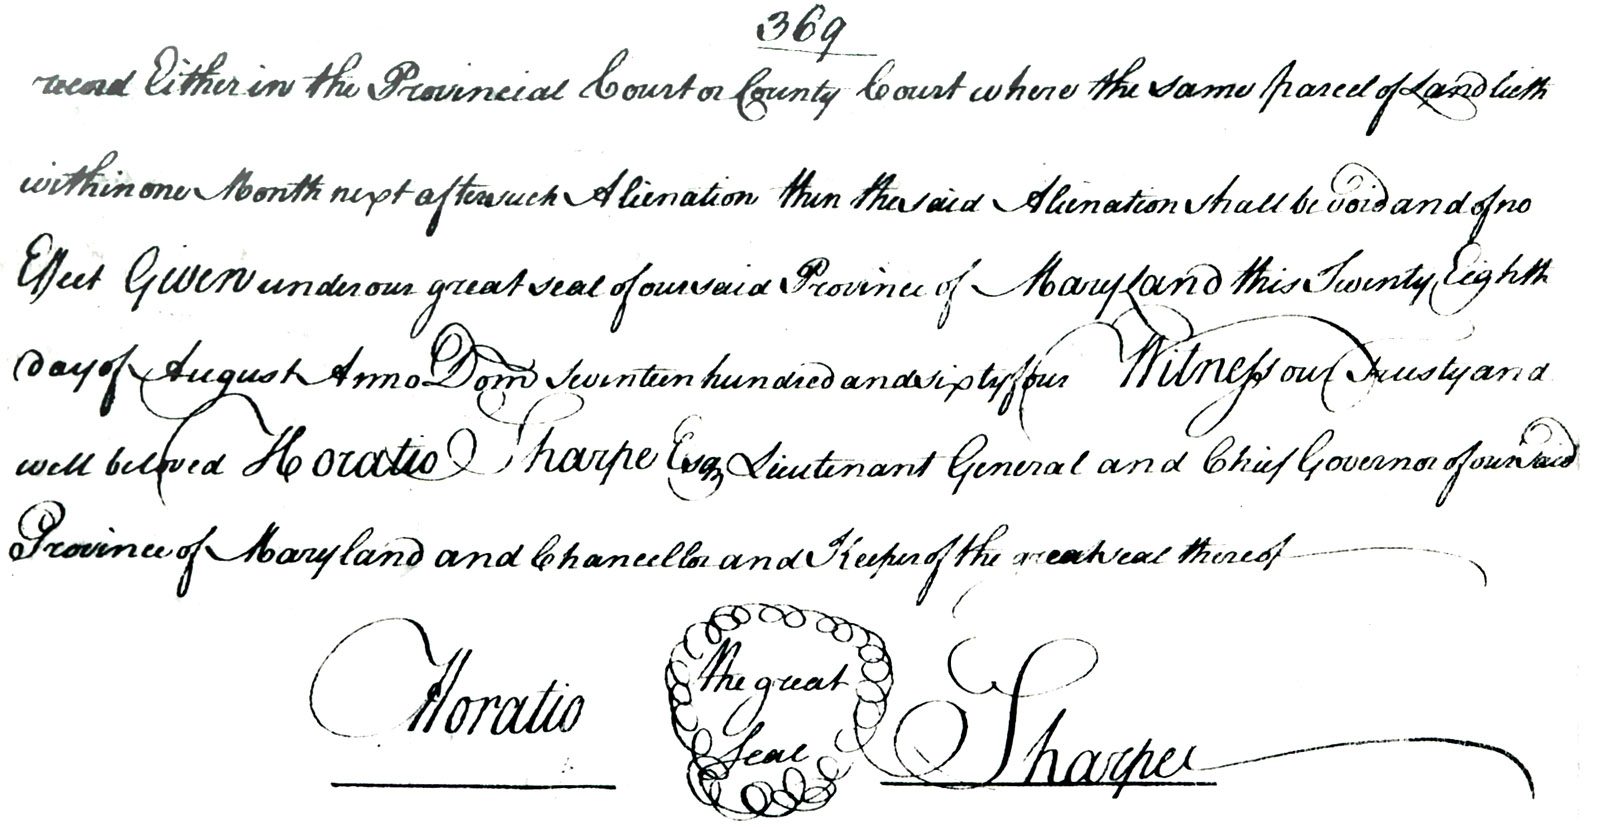 369
record Either in the Provincial Court or County Court where the same parcel of Land lieth
within one Month next after such Alienation then the said Alienation shall be void and of no
Effect Given under our great seal of our said Province of Maryland this Twenty Eighth
day of August Anno Dom seventeen hundred and sixty four Witness our Trusty and
well beloved Horatio Sharpe Esqr Lieutenant General and Chief Governor of our said
Province of Maryland and Chancellor and Keeper of the great seal thereof
Horatio the great Seal Sharpe